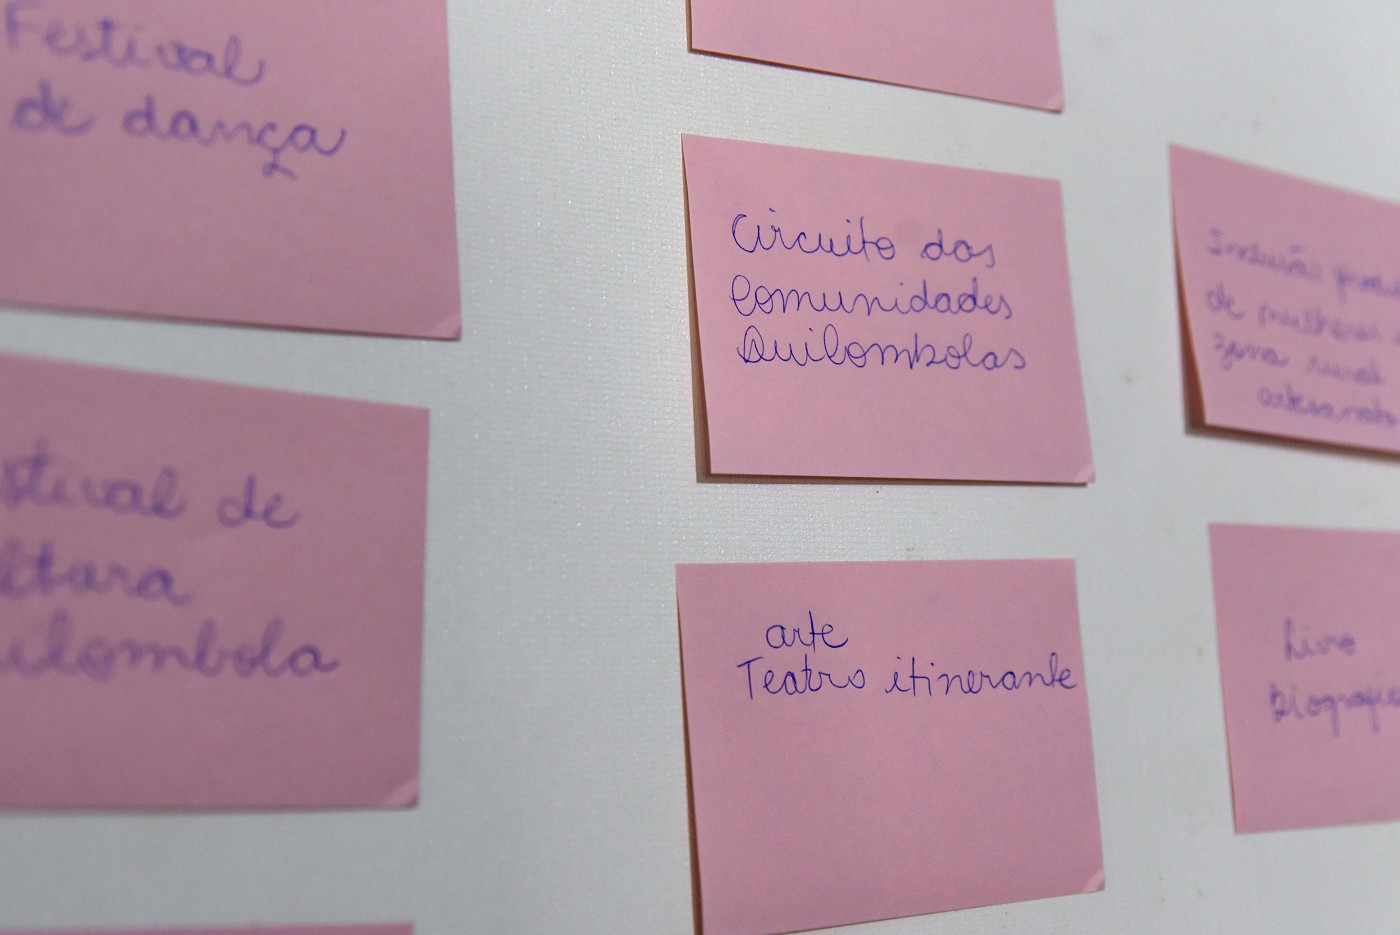 Festival
de dança
stival de
ltura
uilombola
Circuito das
Comunidades
Quilombolas
arte
Teatro itinerante
Inclusão
de mulheres
zona rural
artesanato
Livro